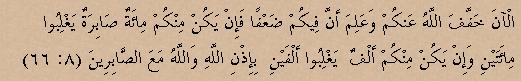 الْآنَ خَفَّفَ اللَّهُ عَنكُمْ وَعَلِمَ أَنَّ فِيكُمْ ضَعْفًا فَإِنْ يَكُنْ مِنْكُمْ مِائَةٌ صَابِرَةٌ يَغْلِبُوا
مِائَتَيْنِ وَإِنْ يَكُنْ مِنْكُمْ أَلْفٌ يَغْلِبُوا أَلْفَيْنِ بِإِذْنِ اللَّهِ وَاللَّهُ مَعَ الصَّابِرِينَ (٨: ٦٦)